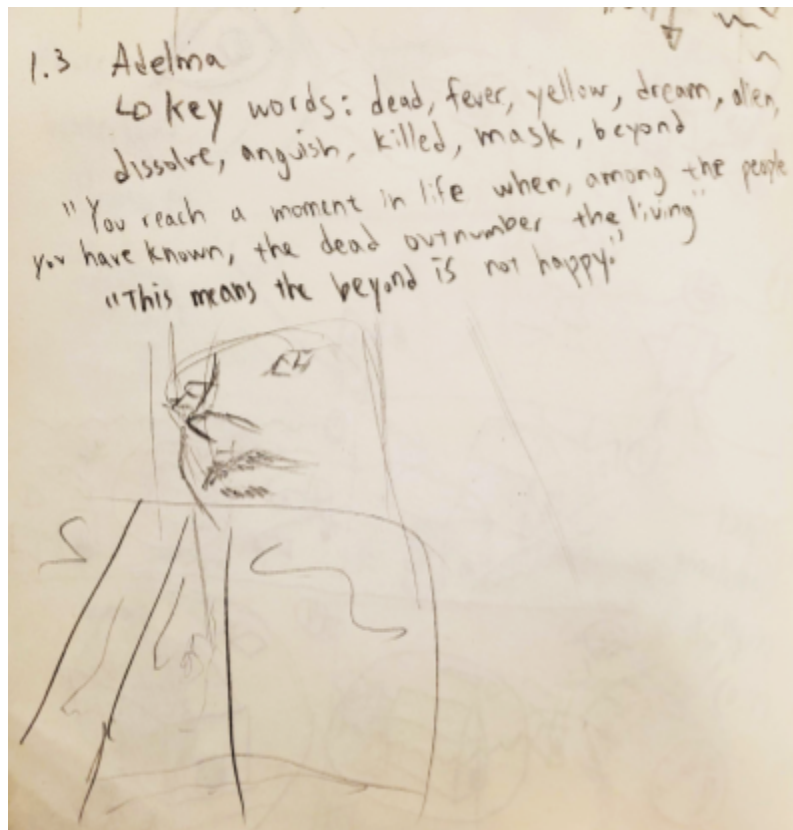 1.3 Adelma
↳ key words: dead, fever, yellow, dream, alien,
dissolve, anguish, killed, mask, beyond
"You reach a moment in life when, among the people
you have known, the dead outnumber the living"
"This means the beyond is not happy."